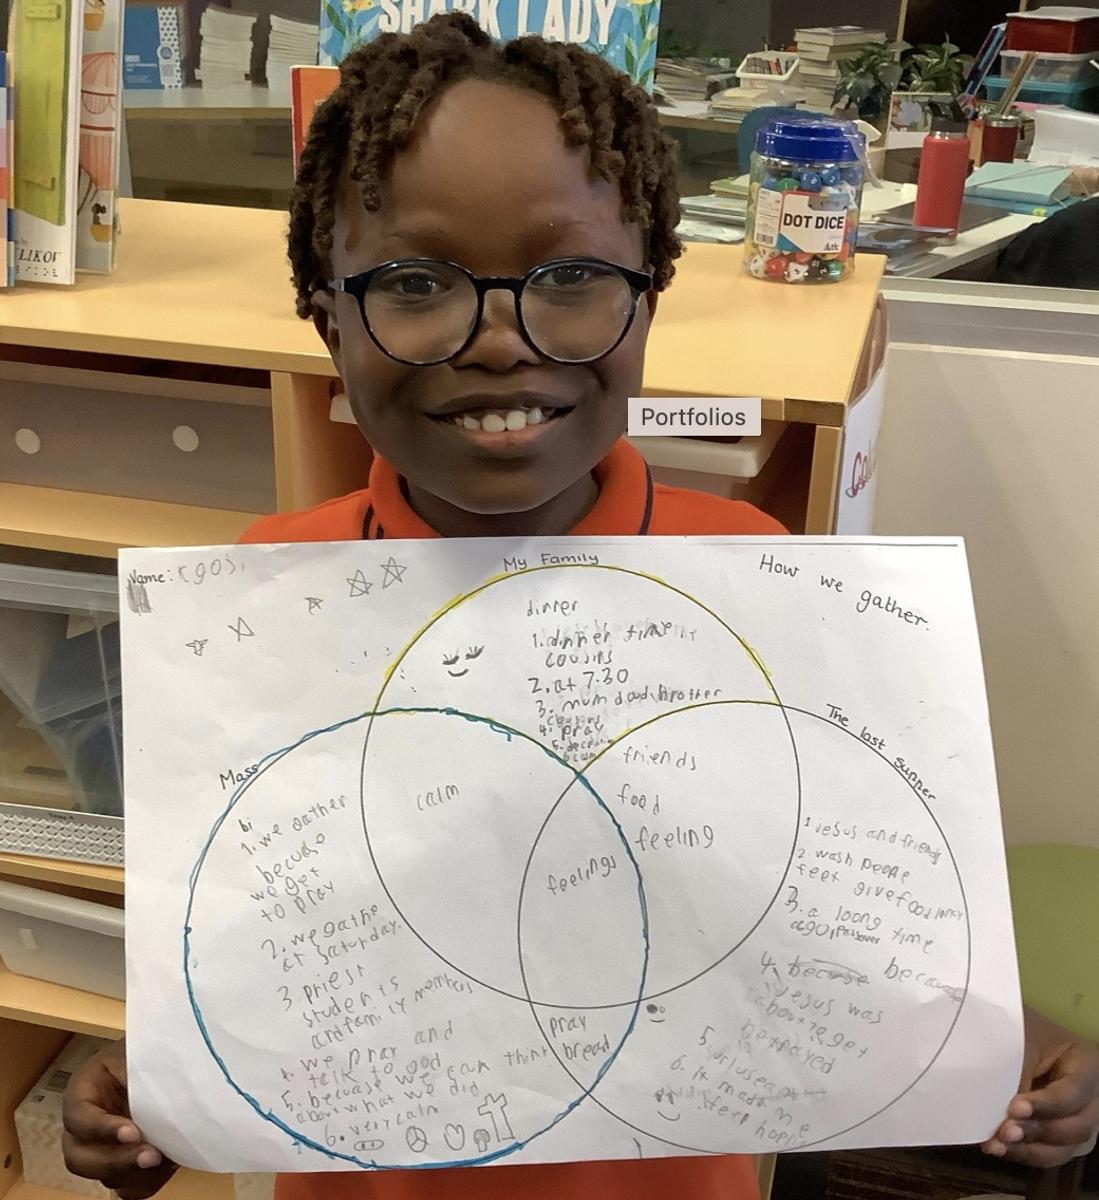 SHARK LADY
LIKOV
DOT DICE
Portfolios
Name: Kgosi
My Family
How we gather.
dinner
1. dinner time
cousins
2. at 7.30
3. mum dad brother
cousins
4. pray
The last supper
Mass
friends
food
feeling
calm
feelings
pray
bread
1. we gather
becuase
we get
to pray
2. we gathe
at saturday.
3. priest
students
and family members
4. we pray and
talk to God
5. becuase we can think
about what we did
6. very calm
1 Jesus and friends
2. wash peope
feet give food
3. a loong time
ago, passover
4. becuse because
Jesus was
about to get
betrayed
5.
6. it made me
feel